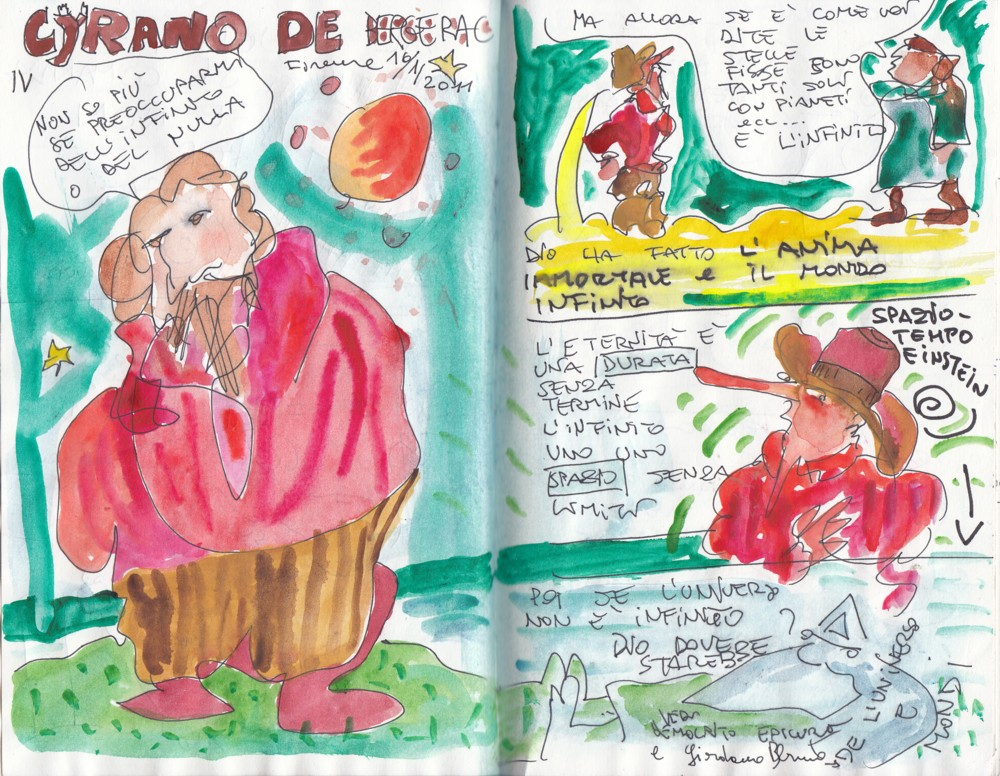 CYRANO DE BERGERAC
Firenze 16/1/2011
IV
NON SO PIÙ
SE PREOCCUPARMI
DELL'INFINITO
O DEL NULLA
MA ALLORA SE È COME VOI
DITE LE
STELLE
FISSE SONO
TANTI SOLI
CON PIANETI
ecc...
È L'INFINITO
DIO HA FATTO L'ANIMA
IMMORTALE e IL MONDO
INFINITO
L'ETERNITÀ È
UNA DURATA
SENZA
TERMINE
L'INFINITO
UNO UNO
SPAZIO SENZA
LIMITI
SPAZIO-
TEMPO
EINSTEIN
POI SE L'UNIVERSO
NON È INFINITO
DIO DOVE
STAREBBE
?
DE L'UNIVERSO
E
MONDI
VEDI
DEMOCRITO EPICURO
e Giordano Bruno